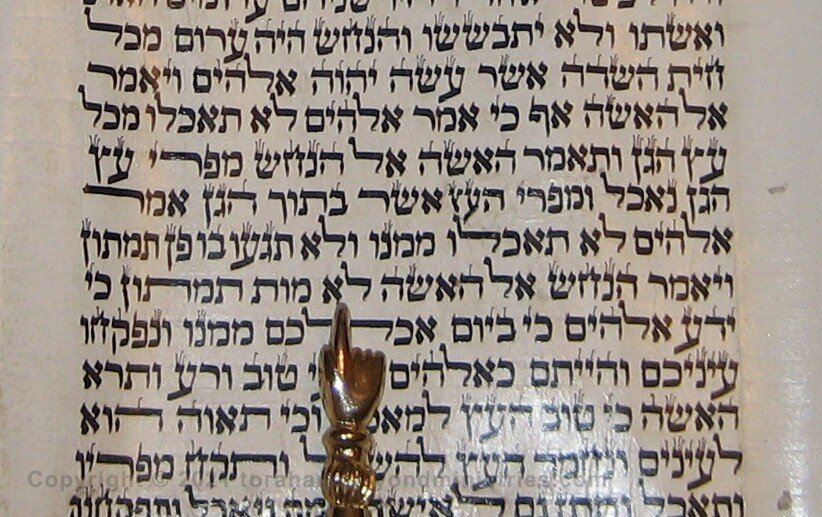 שניהם ערומים האדם
ואשתו ולא יתבששו והנחש היה ערום מכל
חית השדה אשר עשה יהוה אלהים ויאמר
אל האשה אף כי אמר אלהים לא תאכלו מכל
עץ הגן ותאמר האשה אל הנחש מפרי עץ
הגן נאכל ומפרי העץ אשר בתוך הגן אמר
אלהים לא תאכלו ממנו ולא תגעו בו פן תמתון
ויאמר הנחש אל האשה לא מות תמתון כי
ידע אלהים כי ביום אכלכם ממנו ונפקחו
עיניכם והייתם כאלהים טוב ורע ותרא
האשה כי טוב העץ וכי תאוה הוא
לעינים ונחמד העץ ותקח מפריו
Copyright ©
ותאכל ותתן גם לאישה ויאכל ותפקחנה